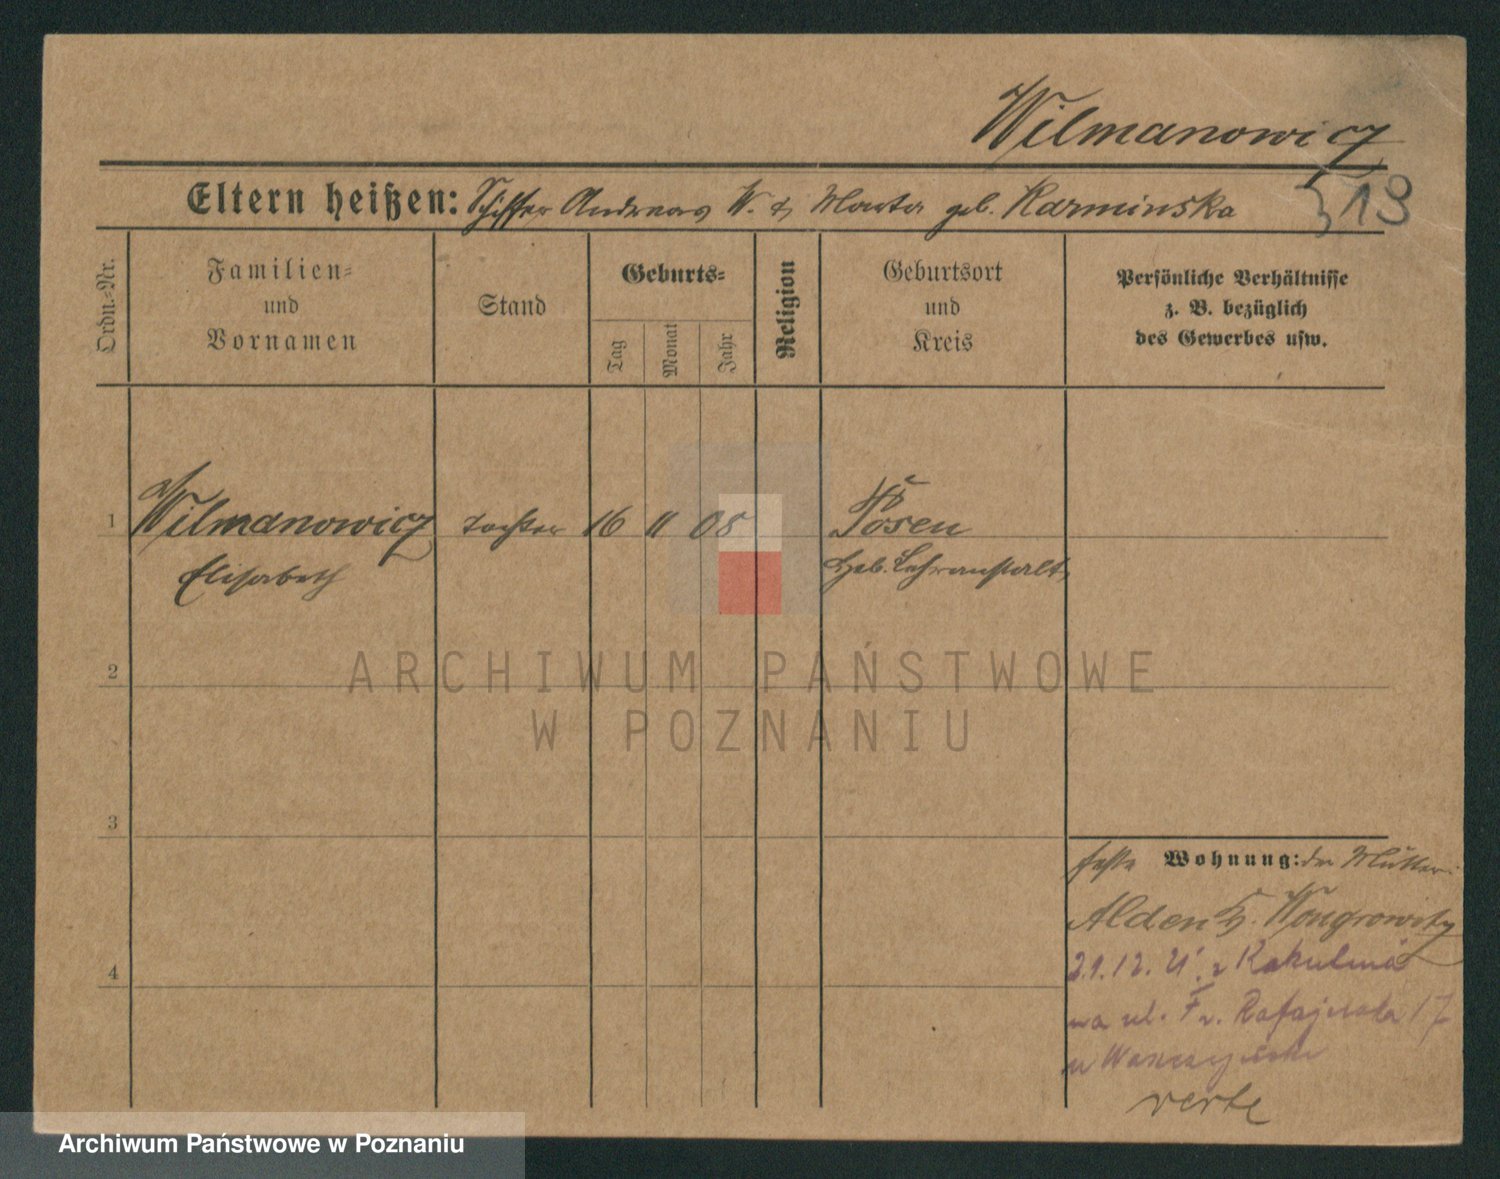 Wilmanowicz
Eltern heißen: Schiffer Andreas W. & Marta geb. Karminska
13
Ordn.-Nr.
Familien-
und
Vornamen
Stand
Geburts-
Tag
Monat
Jahr
Religion
Geburtsort
und
Kreis
Persönliche Verhältnisse
z. B. bezüglich
des Gewerbes usw.
1
Wilmanowicz
Elisabeth
Tochter
16
11
05
Posen
Heb. Lehranstalt
2
ARCHIWUM PAŃSTWOWE
W POZNANIU
3
feste Wohnung: der Mutter:
Alden Wongrowitz
4
21.12.21. z
na ul. Fr. Ratajczaka 17
u
verte
Archiwum Państwowe w Poznaniu